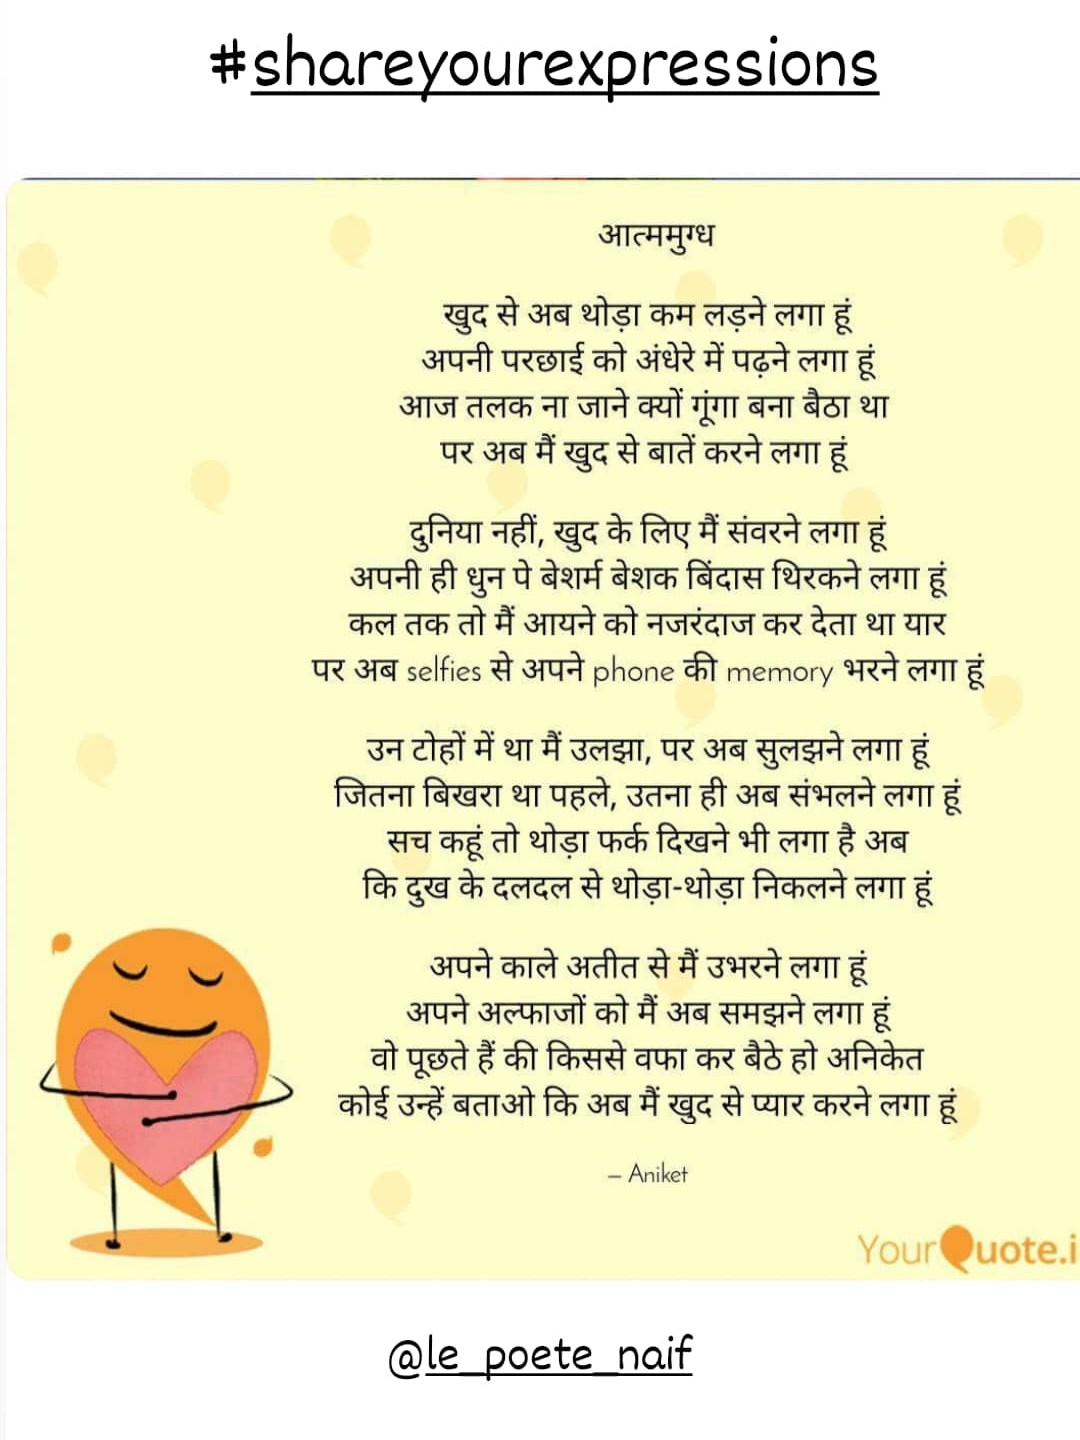 #shareyourexpressions
आत्ममुग्ध
खुद से अब थोड़ा कम लड़ने लगा हूं
अपनी परछाई को अंधेरे में पढ़ने लगा हूं
आज तलक ना जाने क्यों गूंगा बना बैठा था
पर अब मैं खुद से बातें करने लगा हूं
दुनिया नहीं, खुद के लिए मैं संवरने लगा हूं
अपनी ही धुन पे बेशर्म बेशक बिंदास थिरकने लगा हूं
कल तक तो मैं आयने को नजरंदाज कर देता था यार
पर अब selfies से अपने phone की memory भरने लगा हूं
उन टोहों में था मैं उलझा, पर अब सुलझने लगा हूं
जितना बिखरा था पहले, उतना ही अब संभलने लगा हूं
सच कहूं तो थोड़ा फर्क दिखने भी लगा है अब
कि दुख के दलदल से थोड़ा-थोड़ा निकलने लगा हूं
अपने काले अतीत से मैं उभरने लगा हूं
अपने अल्फाजों को मैं अब समझने लगा हूं
वो पूछते हैं की किससे वफा कर बैठे हो अनिकेत
कोई उन्हें बताओ कि अब मैं खुद से प्यार करने लगा हूं
– Aniket
YourQuote.i
@le_poete_naif